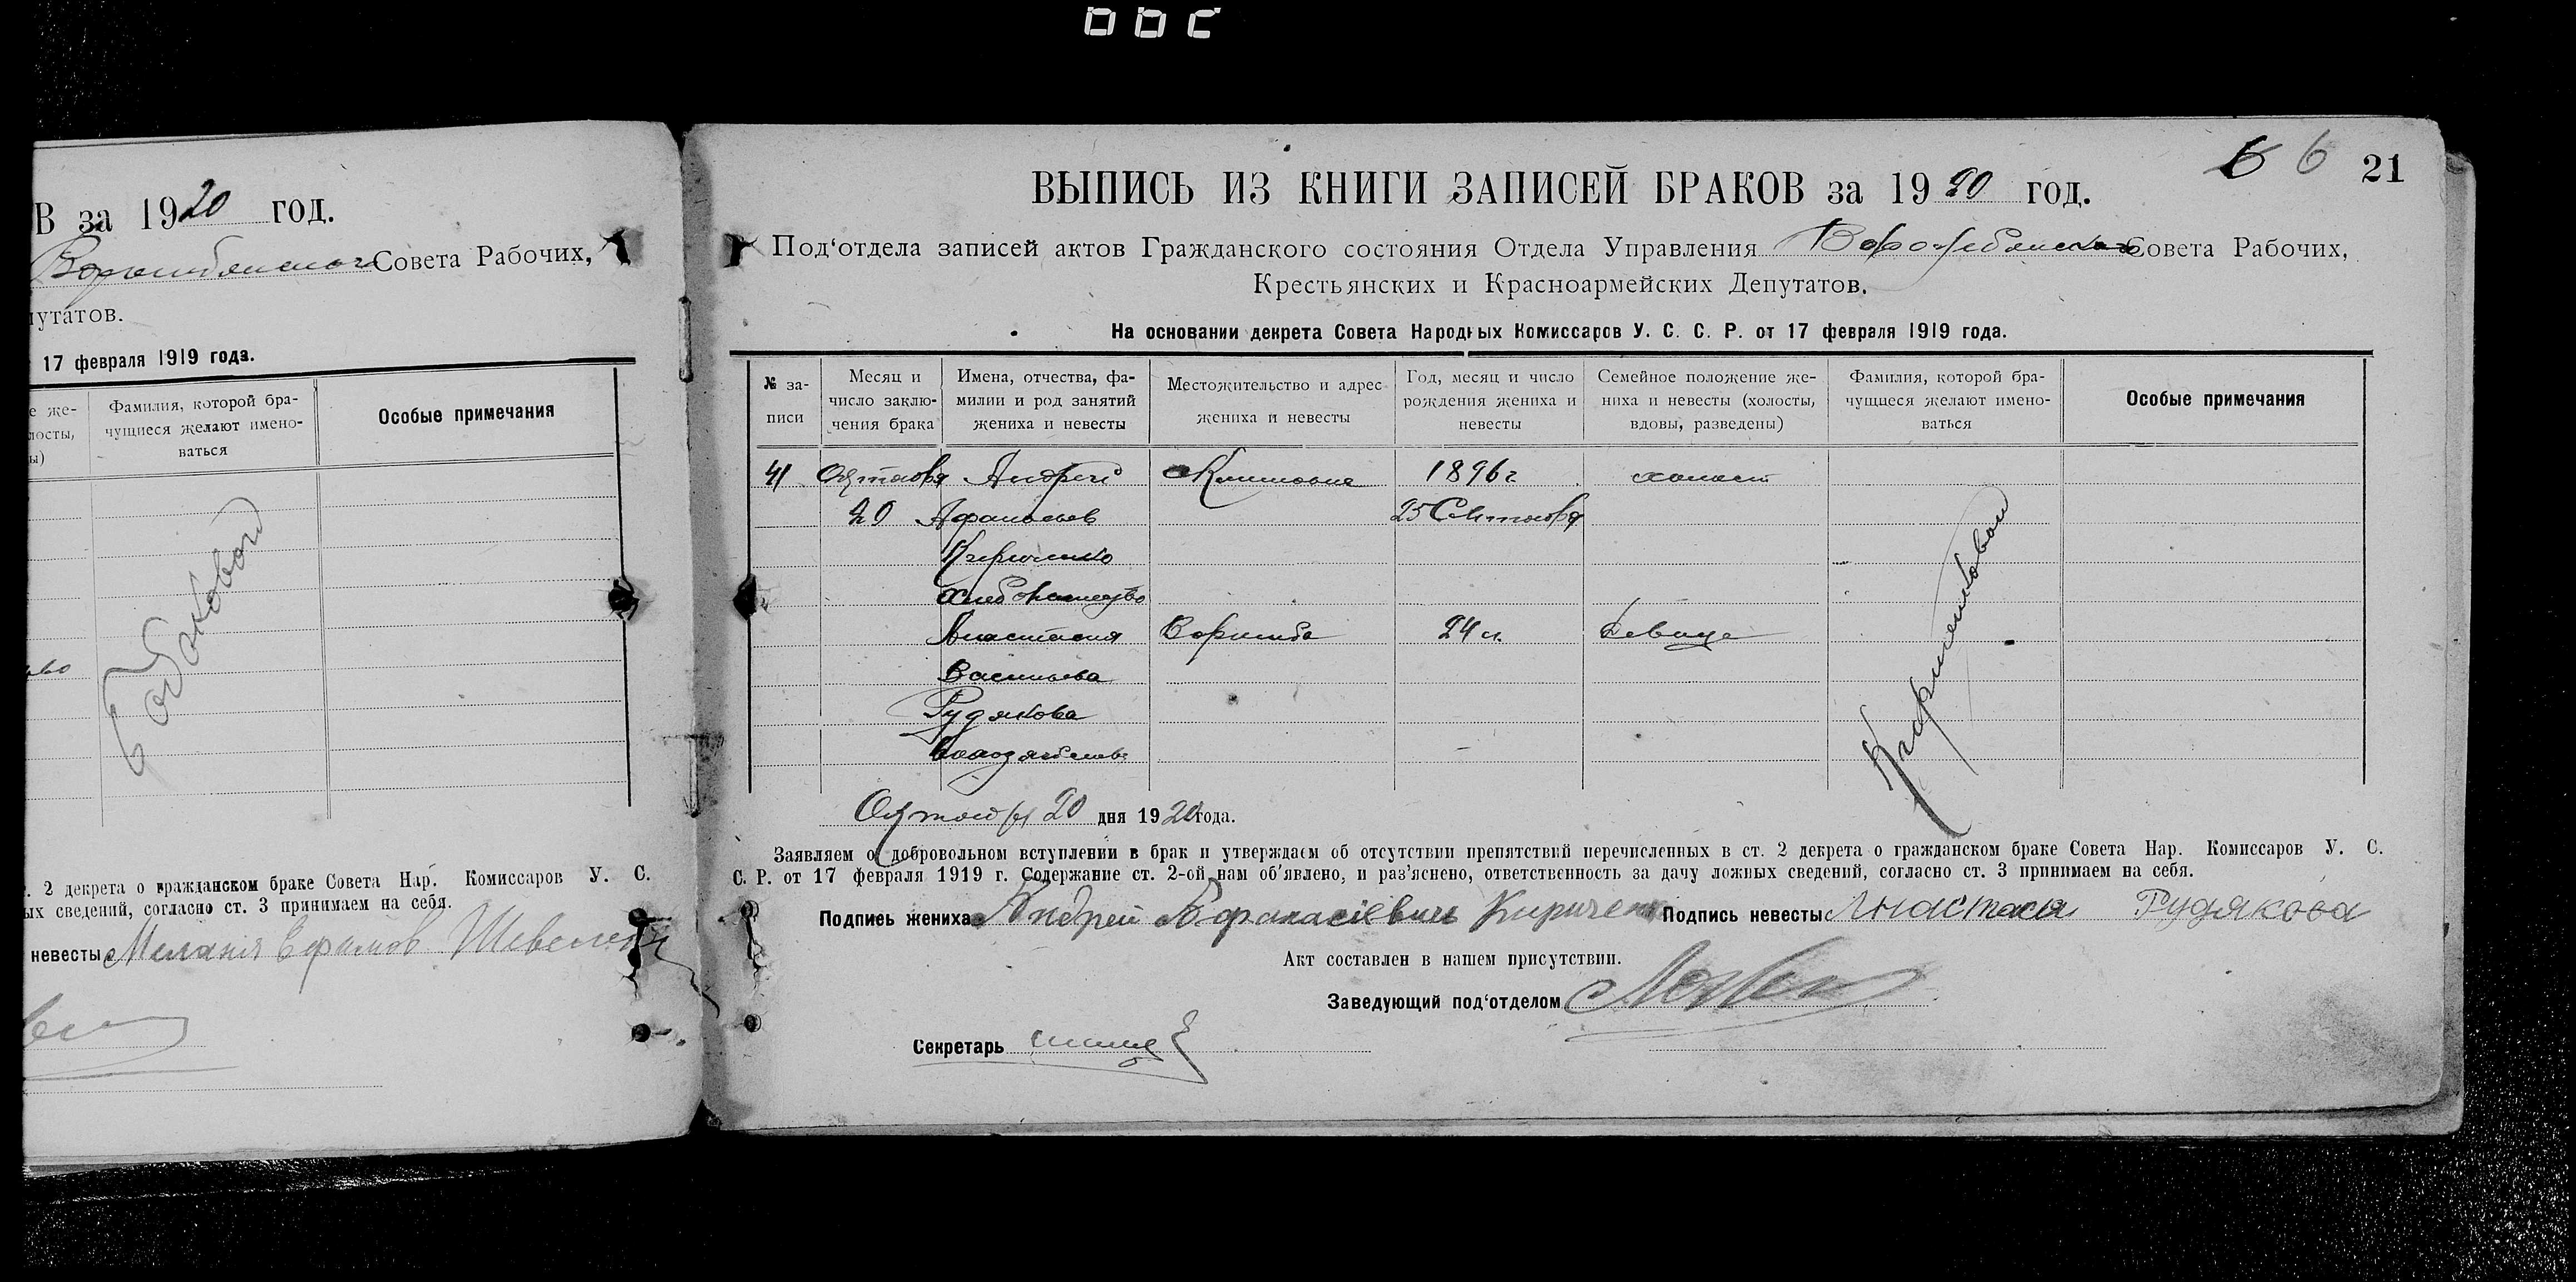 В за 1920 год.
Ворожбянского Совета Рабочих,
путатов.
17 февраля 1919 года.
е же-
лосты,
ы)
Фамилия, которой бра-
чущиеся желают имено-
ваться
Особые примечания
. 2 декрета о гражданском браке Совета Нар. Комиссаров У. С.
ых сведений, согласно ст. 3 принимаем на себя.
невесты Мелания Ефимов
6 6 21
ВЫПИСЬ ИЗ КНИГИ ЗАПИСЕЙ БРАКОВ за 1920 год.
Под‘отдела записей актов Гражданского состояния Отдела Управления Ворожбянского Совета Рабочих,
Крестьянских и Красноармейских Депутатов.
На основании декрета Совета Народных Комиссаров У. С. С. Р. от 17 февраля 1919 года.
№ за-
писи
Месяц и
число заклю-
чения брака
Имена, отчества, фа-
милии и род занятий
жениха и невесты
Местожительство и адрес
жениха и невесты
Год, месяц и число
рождения жениха и
невесты
Семейное положение же-
ниха и невесты (холосты,
вдовы, разведены)
Фамилия, которой бра-
чущиеся желают имено-
ваться
Особые примечания
41 Октября Андрей 1896 г холост
20 Афанасьев 25 Сентября
Кириченко
Хлебопашество
Анастасия Ворожба 24 л. девица
Васильева
Рудякова
Кириченковой
Октября 20 дня 1920 года.
Заявляем о добровольном вступлении в брак и утверждаем об отсутствии препятствий перечисленных в ст. 2 декрета о гражданском браке Совета Нар. Комиссаров У. С.
С. Р. от 17 февраля 1919 г. Содержание ст. 2-ой нам об‘явлено, и раз‘яснено, ответственность за дачу ложных сведений, согласно ст. 3 принимаем на себя.
Подпись жениха Андрей Афанасіевич Кириченко Подпись невесты Анастасия Рудякова
Акт составлен в нашем присутствии.
Заведующий под‘отделом
Секретарь